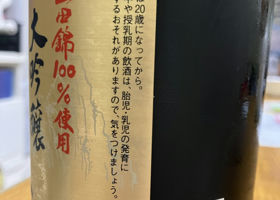 は20歳になってから。
や授乳期の飲酒は、胎児・乳児の発育に
するおそれがありますので、気をつけましょう。
田錦100%使用
大吟醸